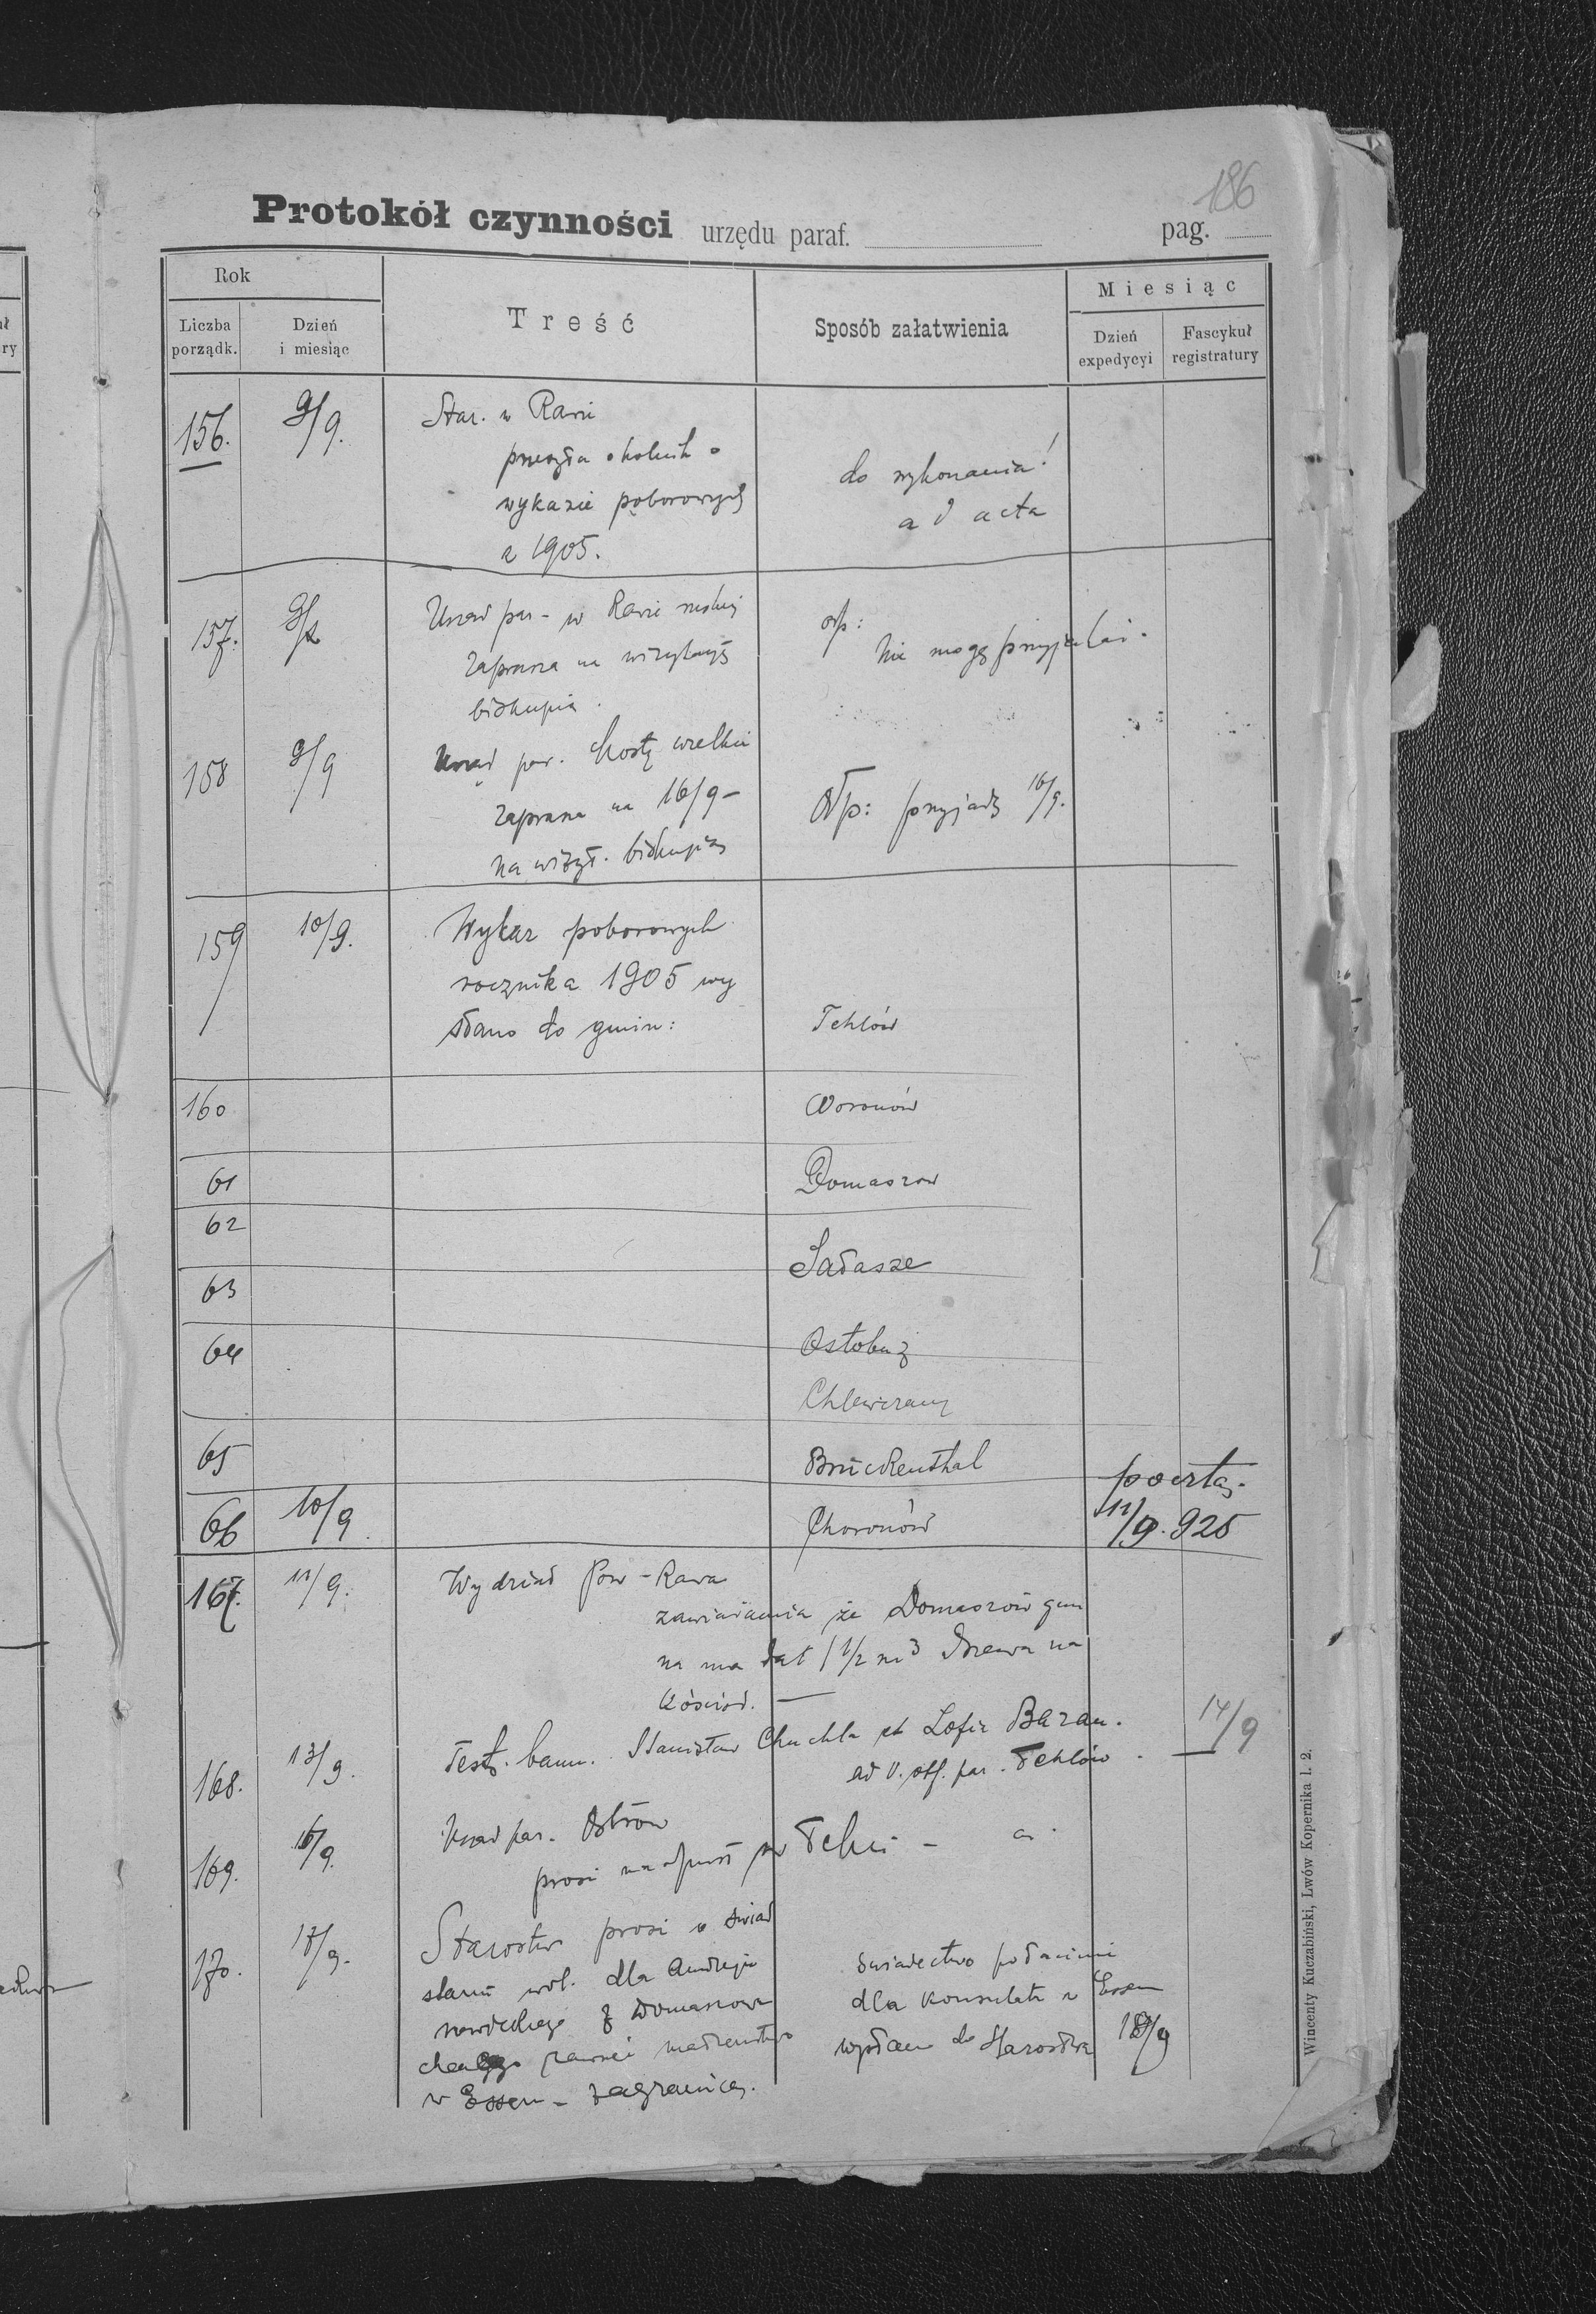 186
Protokół czynności urzędu paraf. pag.
Rok
Liczba porządk.
Dzień i miesiąc
Treść
Sposób załatwienia
Miesiąc
Dzień expedycyi
Fascykuł registratury
156. 9/9. Star. w Rawie
przesyła okolnik o
wykazie poborowych
z 1905.
do wykonania!
ad acta
157. Urząd par - w Rawie ruskiej
zaprasza na wizytację
biskupią.
odp:
Nie mogę przyjechać.
158 9/9 Urząd par. Mosty wielkie
zaprasza na 16/9 -
na wizyt. biskupią
Odp: przyjadę 16/9.
159 10/9. Wykaz poborowych
rocznika 1905 wy
słano do gmin: Tehlów
160 Woronów
61 Domaszow
62
Sałasze
63
Ostobuż
64
Chlewczany
65 Brückenthal
pocztą.
66 10/9. Choronów 11/9. 925
167. 11/9. Wydział Pow - Rawa
zawiadamia że Domaszów gmi
na ma dać 1 1/2 m3 drzewa na
kościół. —
168. 13/9. Test. bann. Stanisław Chuchla et Zofia Baran.
ad V. off. par. Tehlów. — 14/9
169. 16/9. Urząd par. Ostrów
prosi na odpust św Tekli - a.
170. 17/9. Starostwo prosi o świad
stanu wol. dla Andrzeja
z Domaszowa
zawrzeć małżeństwo
w Essen - zagranicą.
świadectwo
dla konsulatu w Essen
wysłano do Starostwa 18/9
Wincenty Kuczabiński, Lwów Kopernika l. 2.